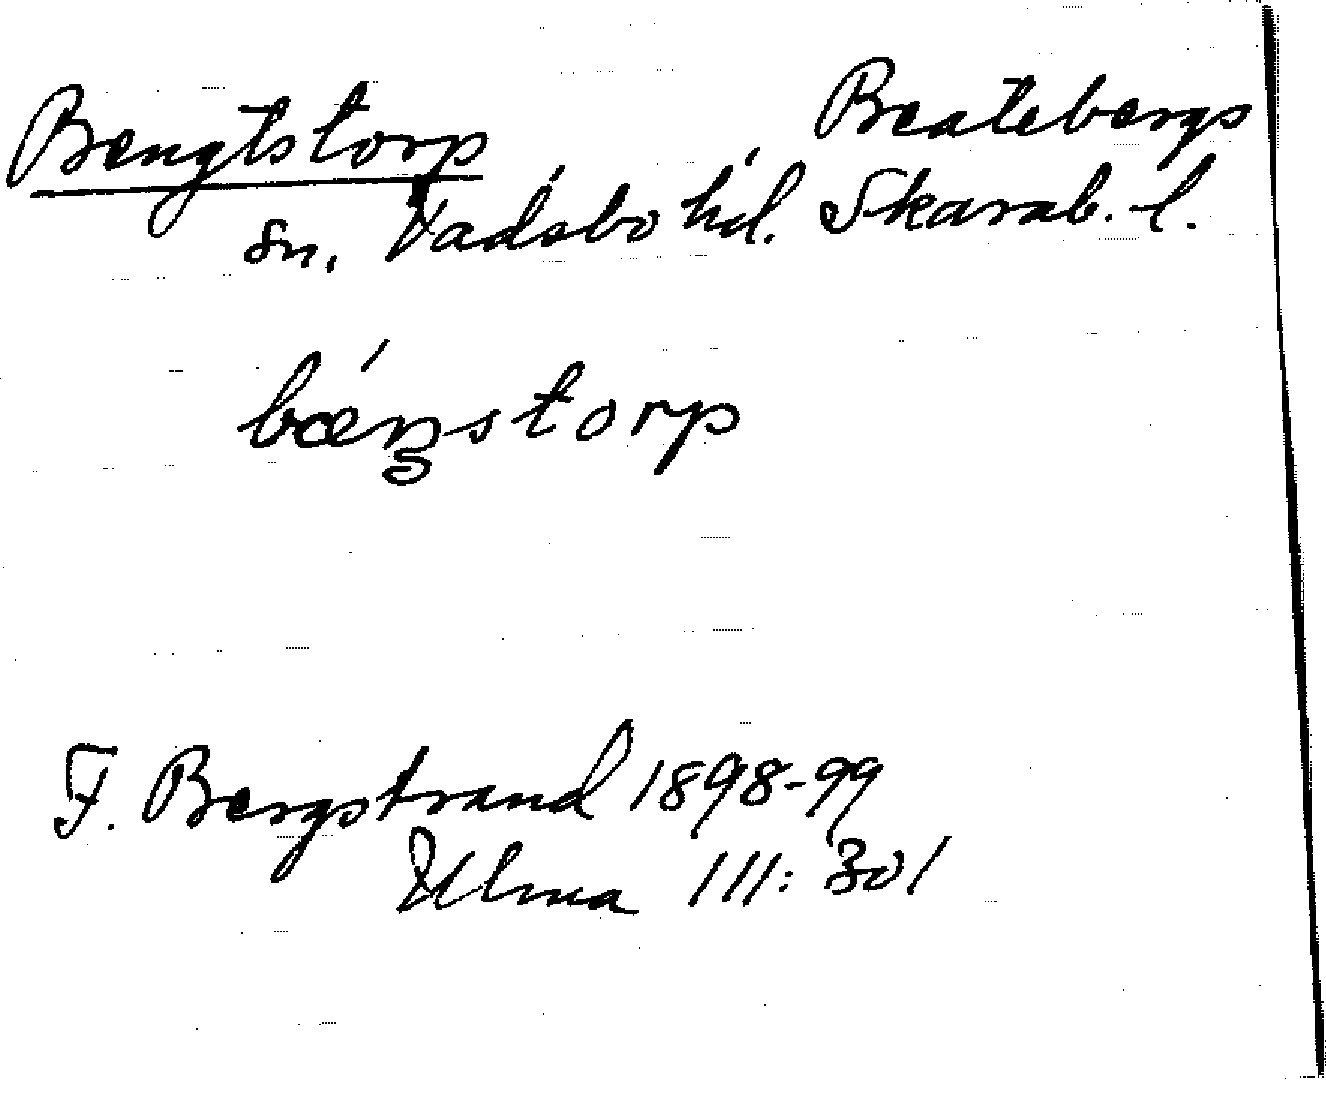 Bengtstorp Beatebergs
sn. Vadsbo hd. Skarab. l.
bǽŋstorp
F. Bergstrand 1898-99
Ulma 111:301